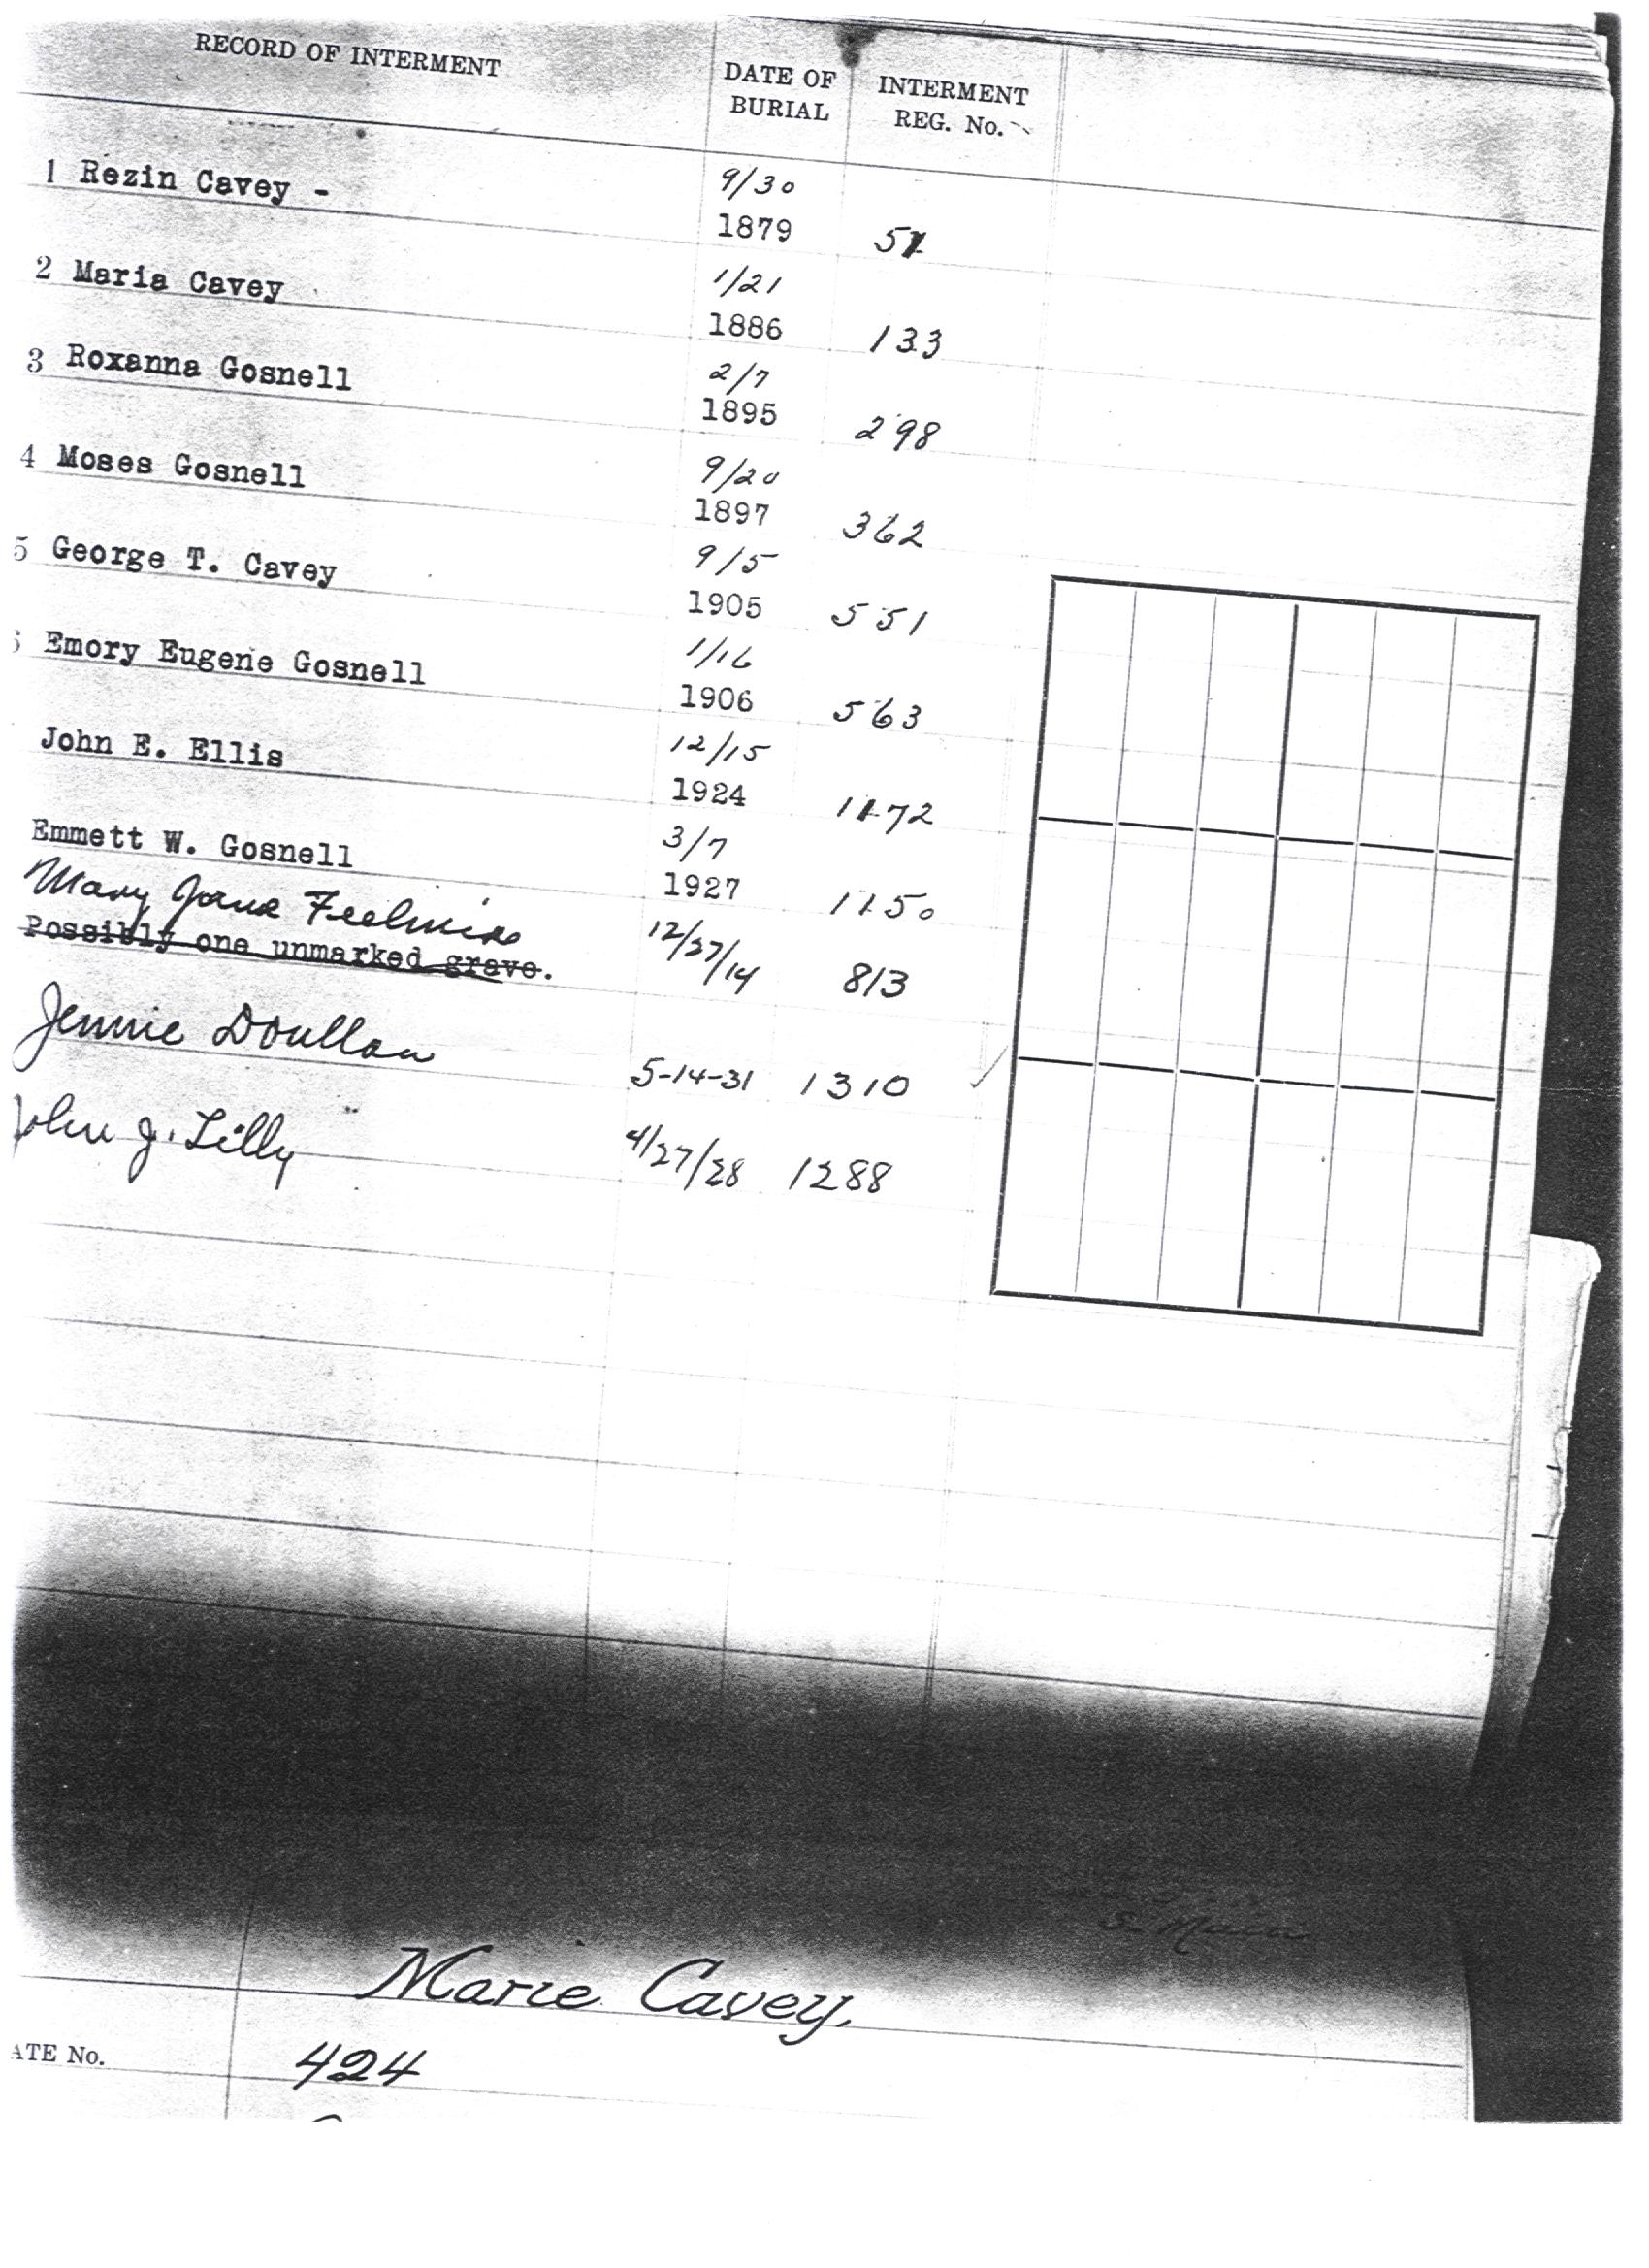 RECORD OF INTERMENT DATE OF BURIAL INTERMENT REG. No.
1 Rezin Cavey - 9/30 1879
2 Maria Cavey 1/21 1886 133
3 Roxanna Gosnell 2/7 1895 298
4 Moses Gosnell 9/20 1897 362
5 George T. Cavey 9/5 1905 551
Emory Eugene Gosnell 1/16 1906 563
John E. Ellis 12/15 1924 1172
Emmett W. Gosnell 3/7 1927 1150
Mary Jane 12/27/14 813
Possibly one unmarked grave.
Jennie 5-14-31 1310
John J. Lilly 4/27/28 1288
Marie Cavey,
ATE No. 424